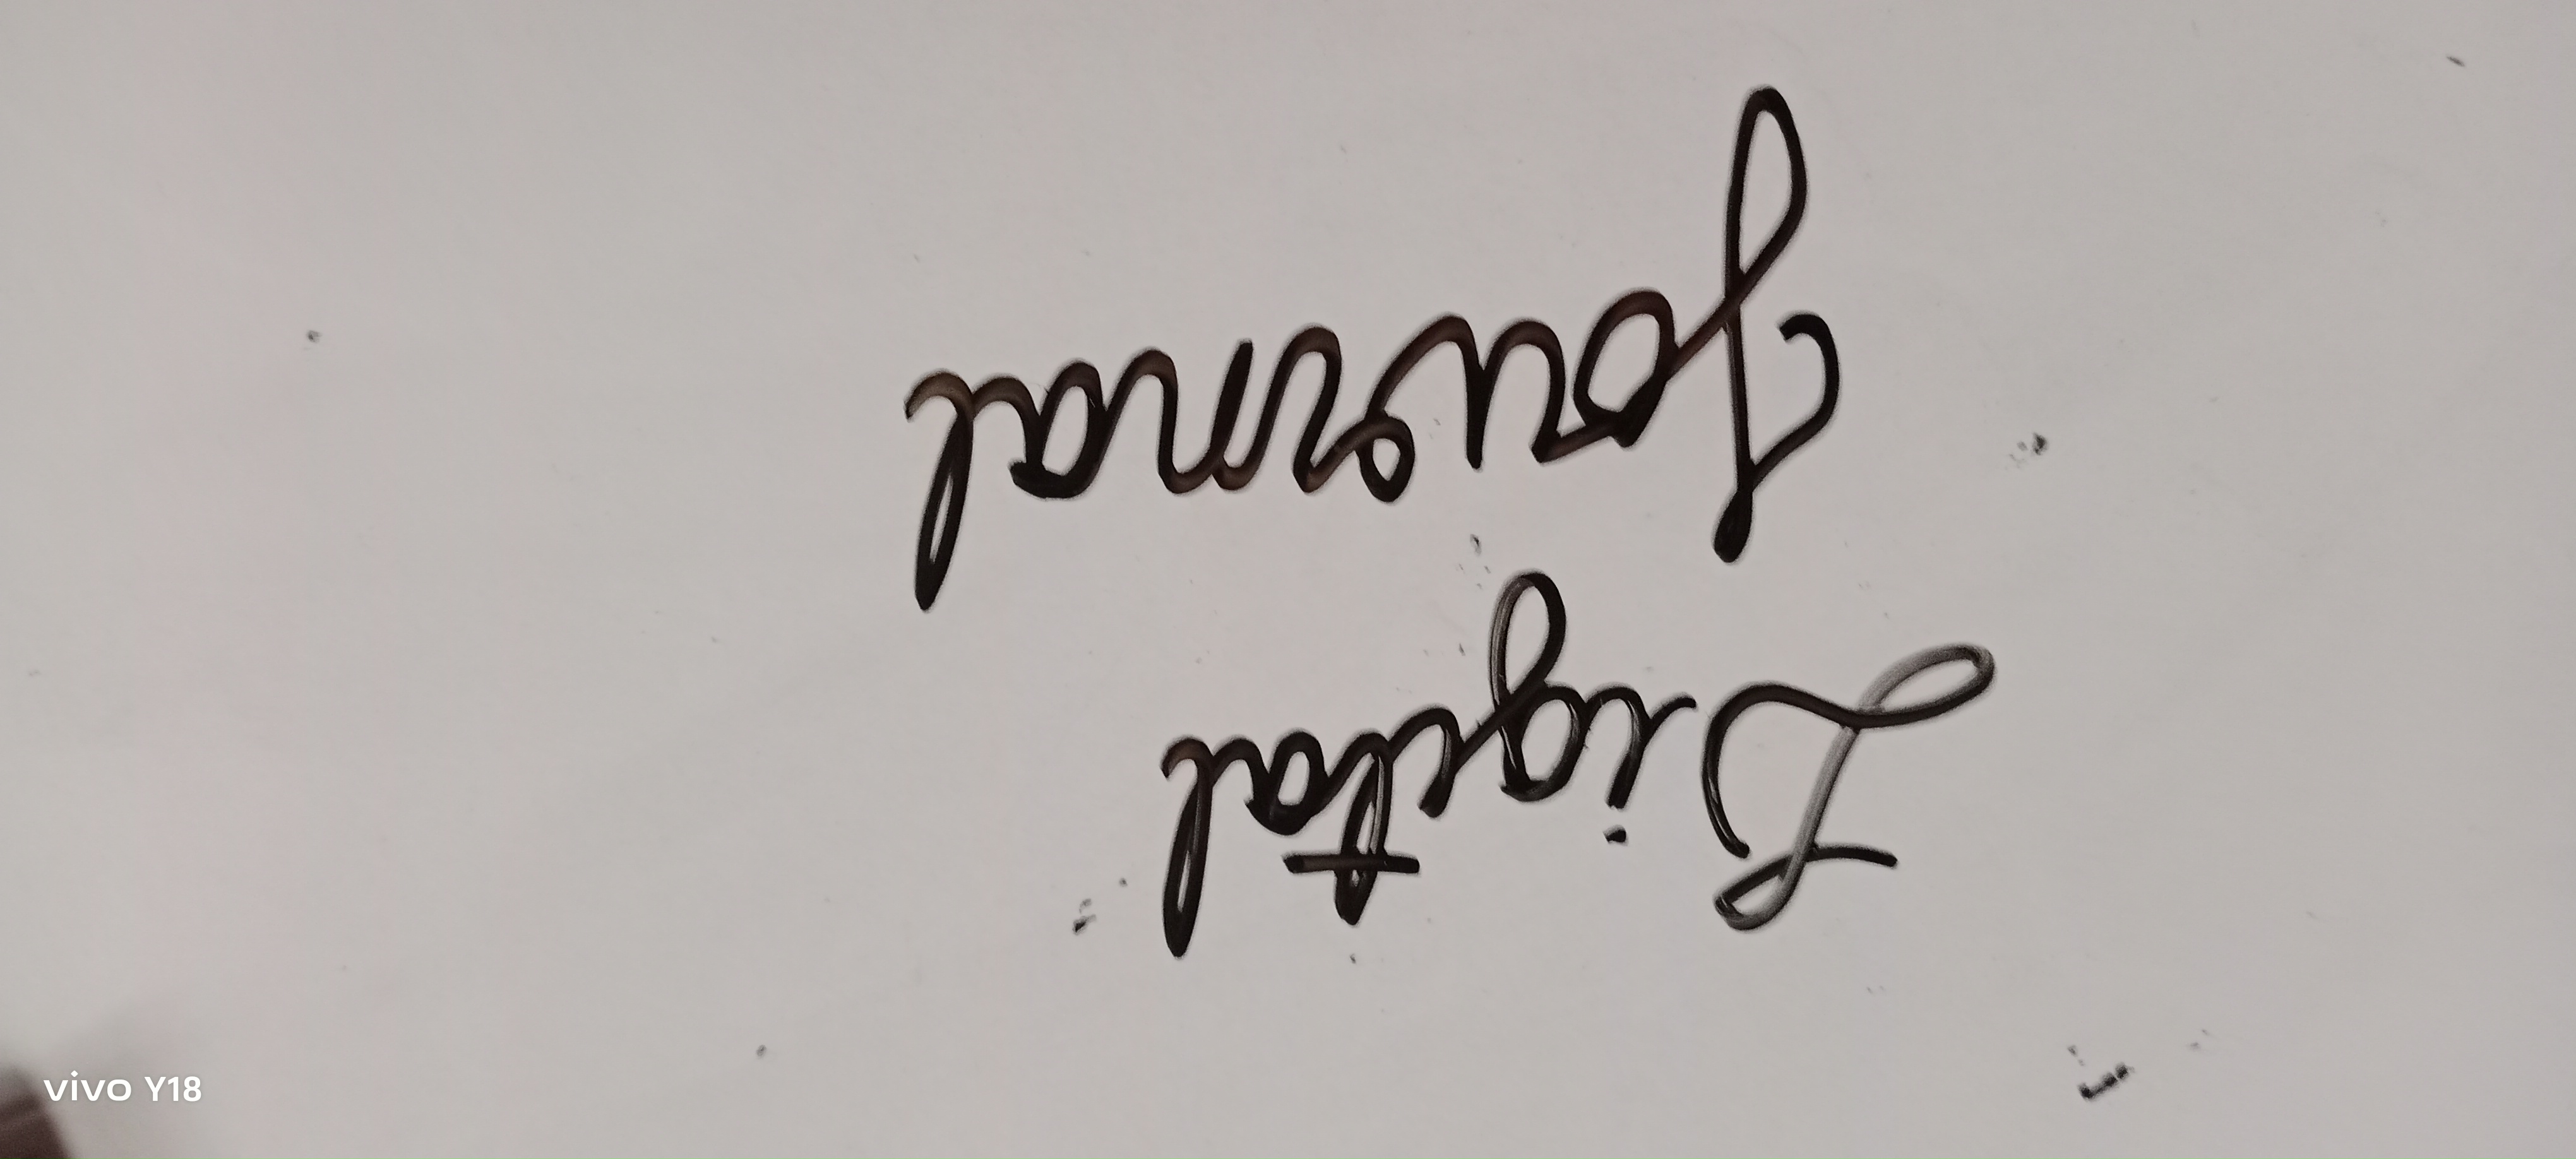 Digital
Journal
vivo Y18